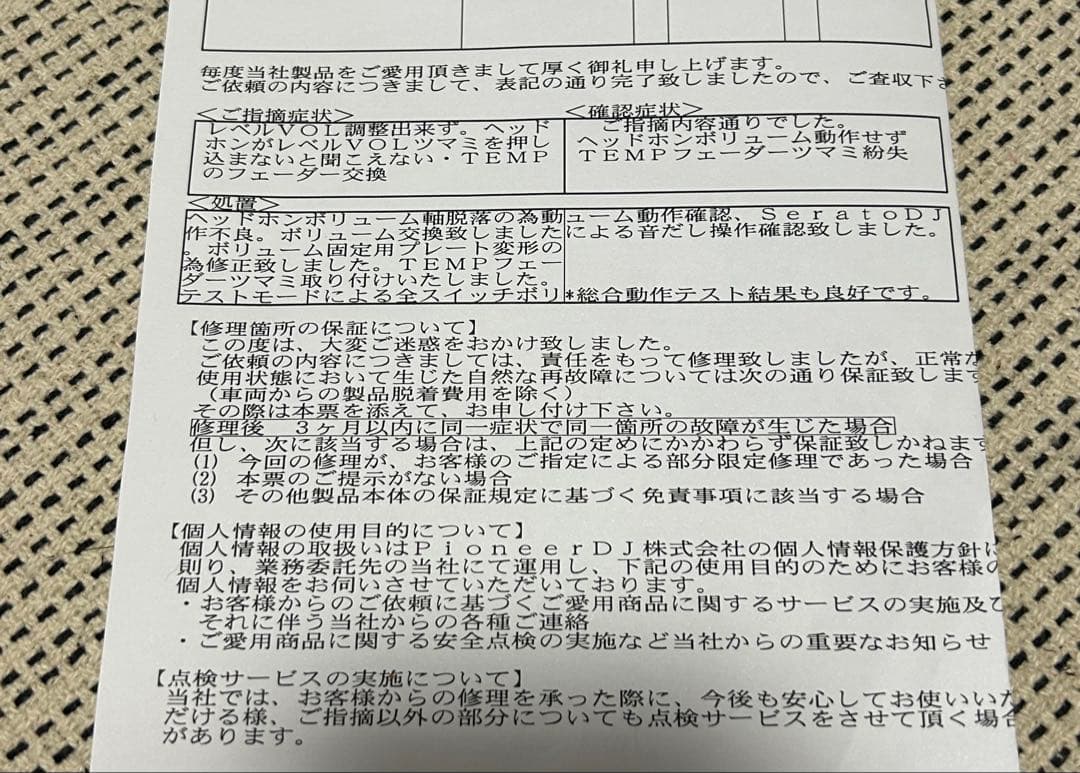 毎度当社製品をご愛用頂きまして厚く御礼申し上げます。
ご依頼の内容につきまして、表記の通り完了致しましたので、ご査収下さ
＜ご指摘症状＞
レベルＶＯＬ調整出来ず。ヘッド
ホンがレベルＶＯＬツマミを押し
込まないと聞こえない・ＴＥＭＰ
のフェーダー交換
＜確認症状＞
ご指摘内容通りでした。
ヘッドホンボリューム動作せず
ＴＥＭＰフェーダーツマミ紛失
＜処置＞
ヘッドホンボリューム軸脱落の為動
作不良。ボリューム交換致しました
。ボリューム固定用プレート変形の
為修正致しました。ＴＥＭＰフェー
ダーツマミ取り付けいたしました。
テストモードによる全スイッチボリ
ューム動作確認、ＳｅｒａｔｏＤＪ
による音だし操作確認致しました。
*総合動作テスト結果も良好です。
【修理箇所の保証について】
この度は、大変ご迷惑をおかけ致しました。
ご依頼の内容につきましては、責任をもって修理致しましたが、正常な
使用状態において生じた自然な再故障については次の通り保証致します
（車両からの製品脱着費用を除く）
その際は本票を添えて、お申し付け下さい。
修理後　３ヶ月以内に同一症状で同一箇所の故障が生じた場合
但し、次に該当する場合は、上記の定めにかかわらず保証致しかねます
(1)　今回の修理が、お客様のご指定による部分限定修理であった場合
(2)　本票のご提示がない場合
(3)　その他製品本体の保証規定に基づく免責事項に該当する場合
【個人情報の使用目的について】
個人情報の取扱いはＰｉｏｎｅｅｒＤＪ株式会社の個人情報保護方針に
則り、業務委託先の当社にて運用し、下記の使用目的のためにお客様の
個人情報をお伺いさせていただいております。
・お客様からのご依頼に基づくご愛用商品に関するサービスの実施及び
それに伴う当社からの各種ご連絡
・ご愛用商品に関する安全点検の実施など当社からの重要なお知らせ
【点検サービスの実施について】
当社では、お客様からの修理を承った際に、今後も安心してお使いいた
だける様、ご指摘以外の部分についても点検サービスをさせて頂く場合
があります。